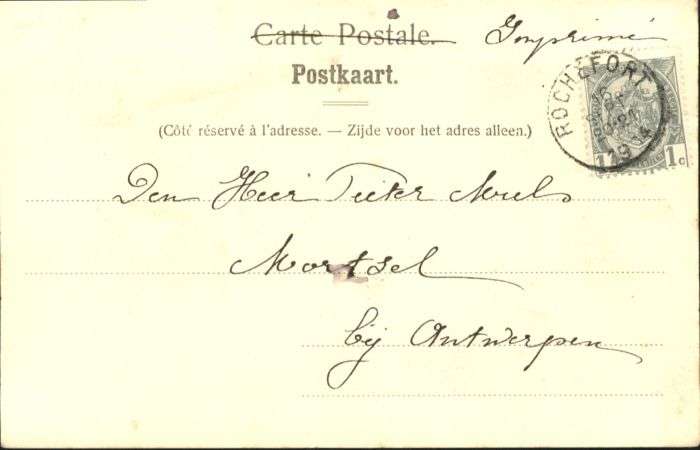 Carte Postale. Imprimé
Postkaart.
ROCHEFORT
1 1c
(Côté réservé à l'adresse. — Zijde voor het adres alleen.)
Den Heer Peeter
Mortsel
bij Antwerpen